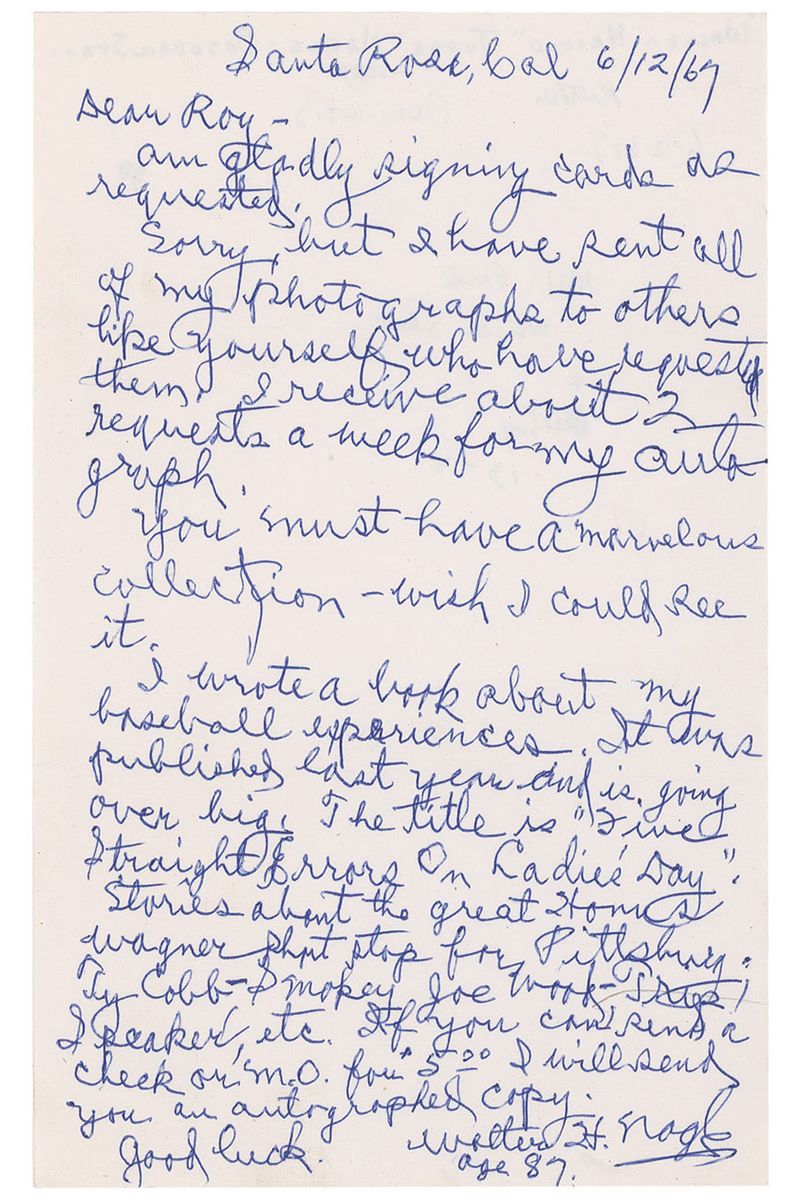 Santa Rosa, Cal 6/12/67
Dear Roy -
am gladly signing cards as
requested.
Sorry, but I have sent all
of my photographs to others
like yourself who have requested
them. I receive about 2
requests a week for my auto
graph.
You must have a marvelous
collection - wish I could see
it.
I wrote a book about my
baseball experiences. It was
published last year and is going
over big. The title is "Five
Straight Errors On Ladies Day".
Stories about the great Honus
Wagner short stop for Pittsburg.
Ty Cobb - Smokey Joe Wood - Tris
Speaker, etc. If you can send a
check or M.O. for $5.00 I will send
you an autographed copy.
Good luck. Walter H. Nagle
age 87.